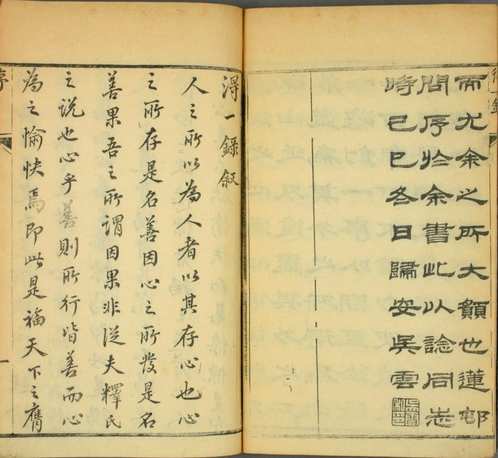 而尤余之所大願也蓮邨
問序於余書此以諗同志
時己巳冬日歸安吳雲
得一錄敘
人之所以為人者以其存心也心
之所存是名善因心之所發是名
善果吾之所謂因果非從夫釋氏
之說也心乎善則所行皆善而心
為之愉快焉即此是福天下之膺
序
一